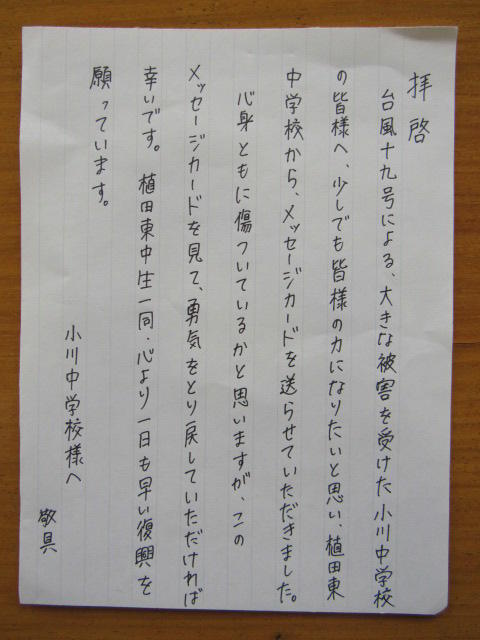 拝啓
台風十九号による、大きな被害を受けた小川中学校
の皆様へ、少しでも皆様の力になりたいと思い、植田東
中学校から、メッセージカードを送らせていただきました。
心身ともに傷ついているかと思いますが、この
メッセージカードを見て、勇気をとり戻していただければ
幸いです。植田東中生一同、心より一日も早い復興を
願っています。
小川中学校様へ
敬具